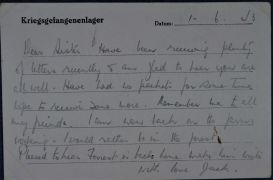 Kriegsgefangenenlager Datum: 1-6-43
Dear Sister Have been receiving plenty
of letters recently & am glad to hear you are
all well. Have had no parcels for some time
hope to receive some more. Remember me to all
my friends. I am now back on the farm
working. I would rather be in the forest
Pleased to hear is better have
with love Jack.